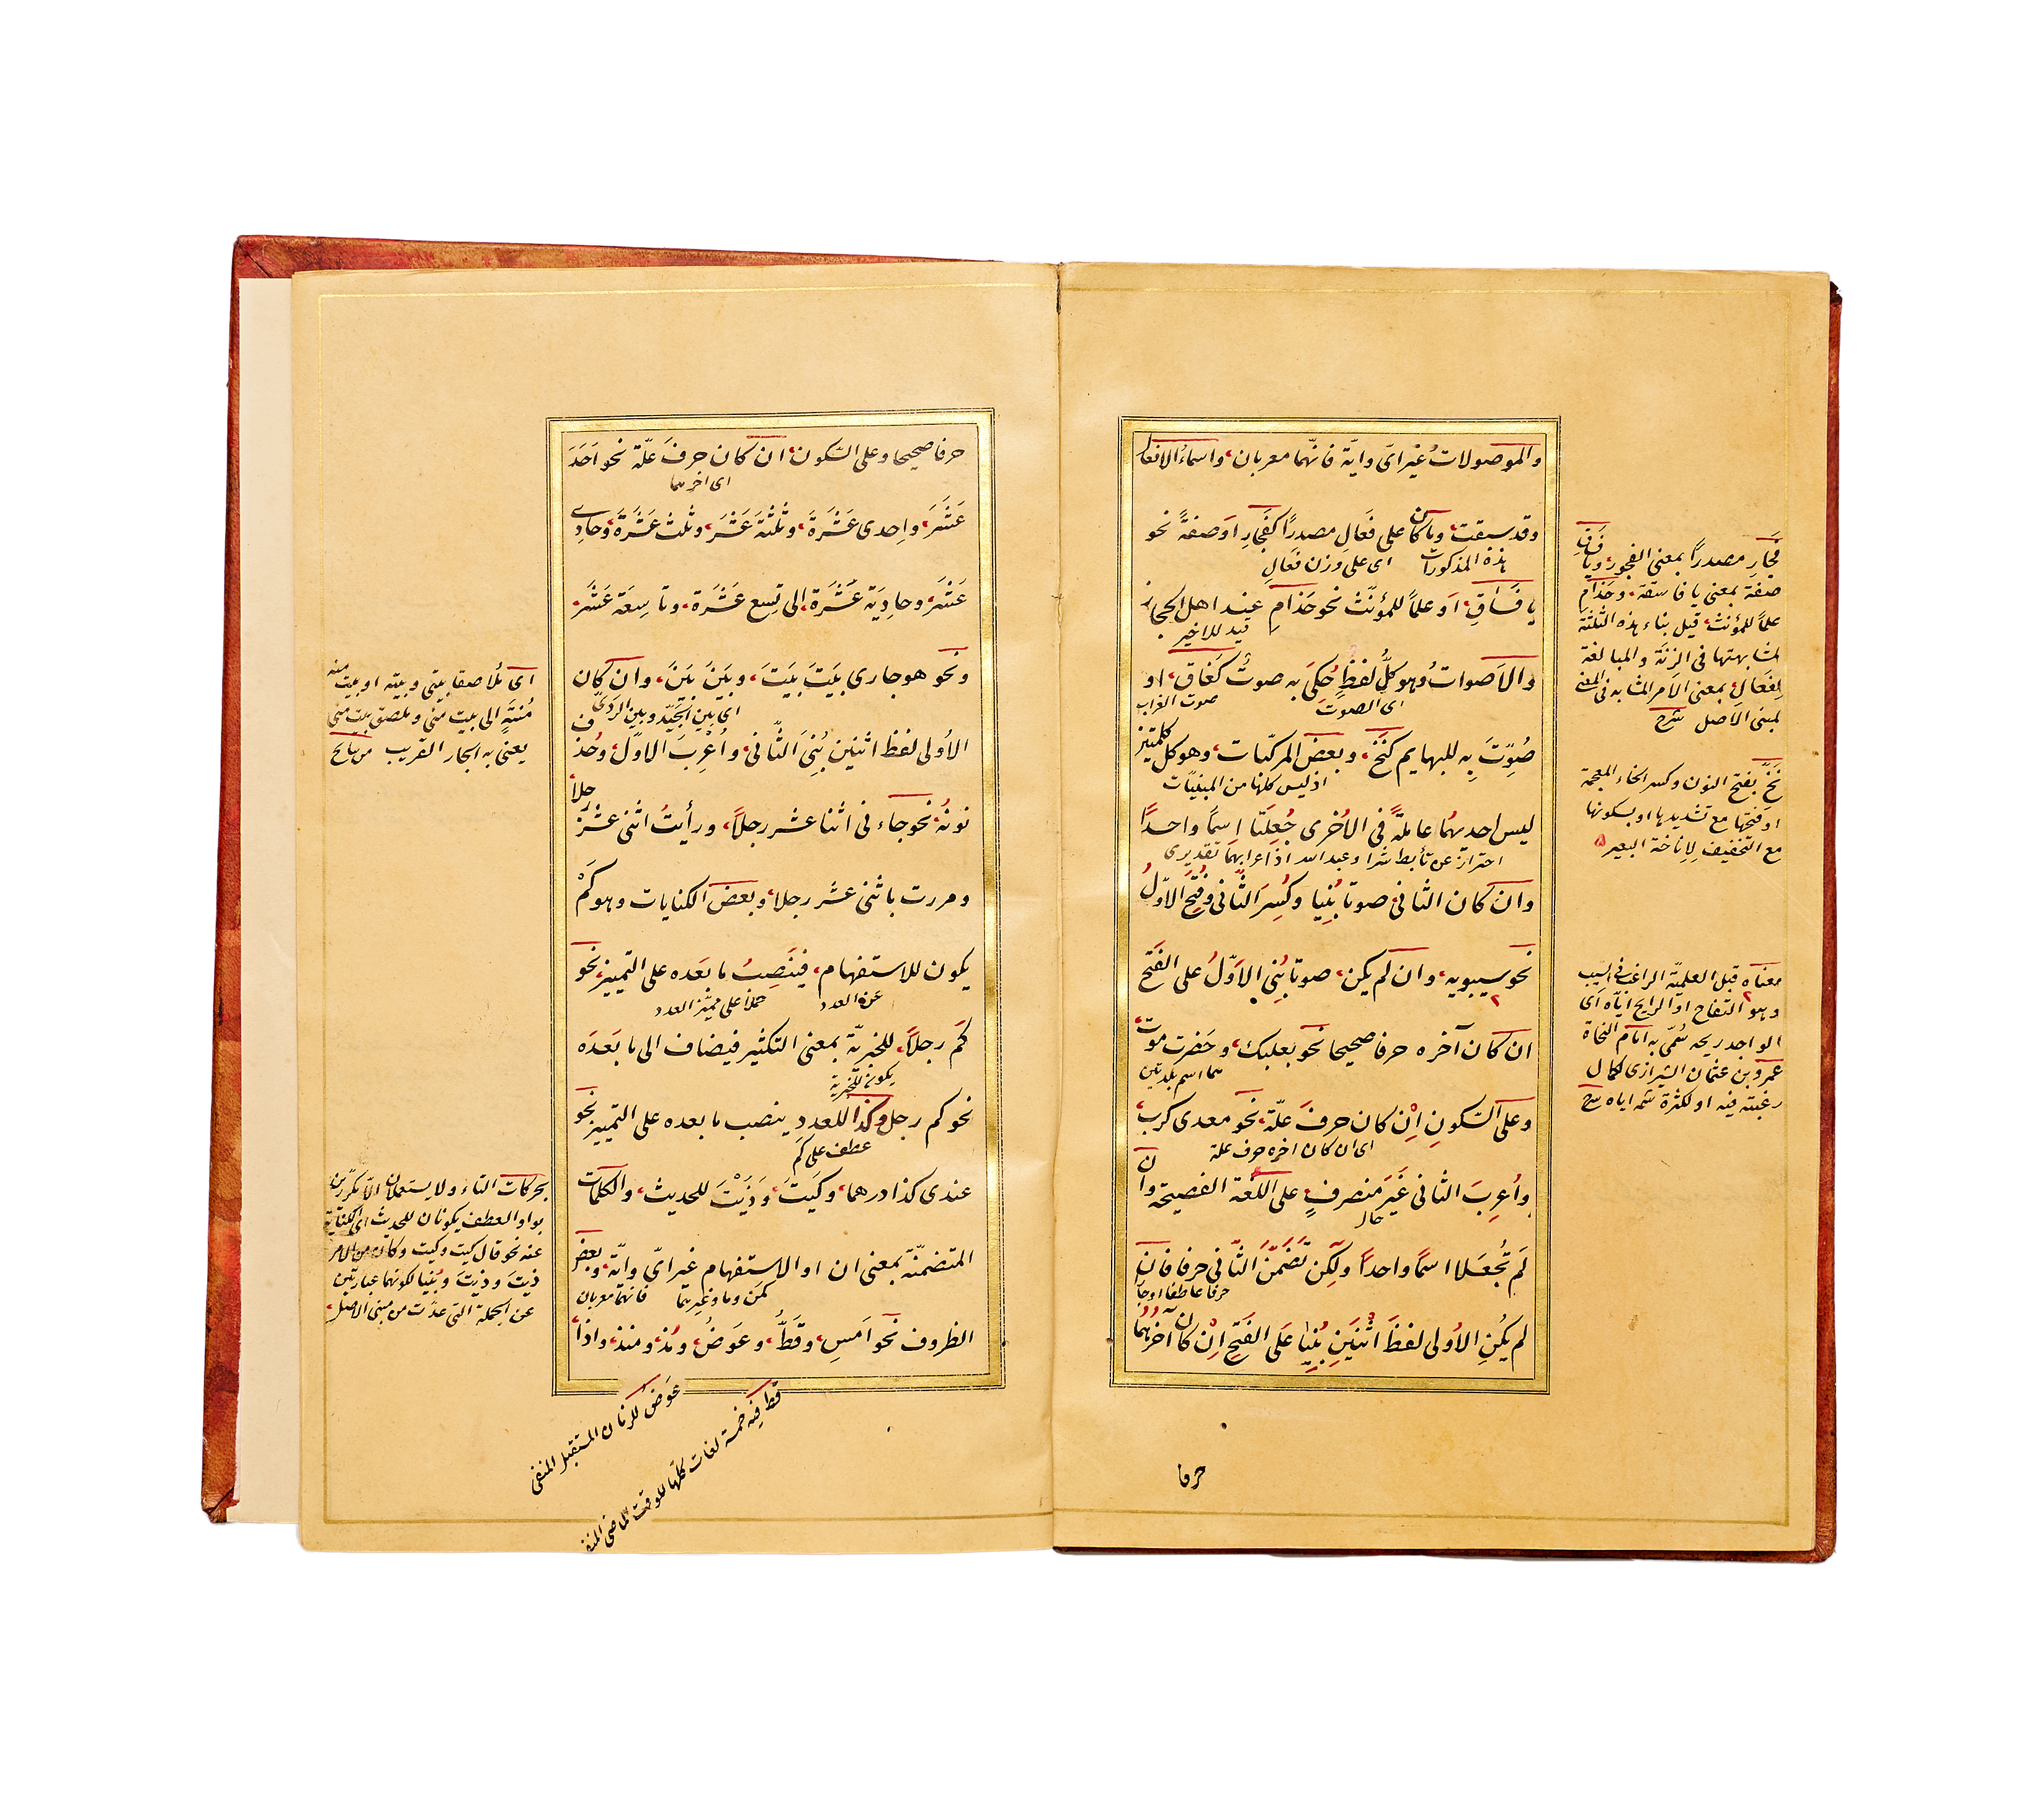 والموصولات غير اىّ وايّة فانّهما معربان، واسماءُ الافعا
وقد سبقت، وما كان على فَعَالِ مصدرًا كَفَجَارِ اوصفةً نحو
هذه المذكورات
اى على وزن فعال
يا فَسَاقِ، اَو علمًا للمؤنّث نحو حَذَامِ عِند اهل الحجاز
قيد للاخير
والاَصوات وهو كلُّ لفظٍ حُكِىَ به صوتٌ كَغَاق، او
اى الصوت
صوت الغراب
صُوِّتَ بِه للبهايم كَنَخَّ، وبعضَ المركّبات، وهو كل كلمتين
اذ ليس كلها من المبنيّات
ليس احديهُما عاملةً فى الاُخرى جُعِلَتا اِسمًا واحدًا
احتراز عن تأبط شرا وعبد الله اذ اعرابهما تقديرى
وان كان الثانى صوتا بُنِيا وكُسِرَ الثّانى وفُتِحَ الاوّلُ
نحو سيبويه، وان لم يكن، صوتا بُنِى الاَوّلُ على الفَتحِ
ان كان آخره حرفا صحيحا نحو بعلبك، وحَضرت موت
هما اسم بلدتين
وعلى السّكونِ اِنْ كان حرفَ علّة، نحو معدى كرب،
اى ان كان اخره حرف علة
واُعرِبَ الثانى غَيَر منصرفٍ على اللّغة الفصيحة وان
حال
لَم تُجعَلا اسمًا واحدًا ولكِن تَضَمّنَ الثّانى حرفا فان
حرفا عاطفا او جارا
لم يكُنِ الاُولى لفظَ اثنَينِ بُنِيا عَلَى الفَتحِ اِنْ كان آخرهُما
فَجَارِ مصدرًا بمعنى الفجور، ويا فساقِ
صفة بمعنى يا فاسقة، وحَذَامِ
علمًا للمؤنث، قيل بناء هذه الثلثة
لمشابهتها فى الزنة والمبالغة
لِفَعَالِ بمعنى الاَمر المشابه فى المعنى
لمبنى الاصل شرح
نَخَّ بفتح النون وكسر الخاء المعجمة
او فتحها مع تشديدها او بسكونها
مع التخفيف لاِناخة البعير
معناه قبل العلميّة الراغب فى السيب
وهو التفاح او الرايح ايّاه اى
الواجد ريحه سُمّى به امام النحاة
عمرو بن عثمان الشيرازى لكمال
رغبته فيه او لكثرة شمه اياه شرح
حرفا
حرفا صحيحا وعلى السّكون، ان كان حرفَ علّة نحو اَحَدَ
اى اخرهما
عَشَرَ، واِحدى عَشْرَةَ، وثلثةَ عَشَرَ، وثلث عَشْرَةَ، وحادِى
عَشَرَ، وحادِيَة عَشْرَة، الى تِسع عَشْرَة، وتاسِعَة عَشَرَ،
ونحو هو جارى بَيتَ بَيتَ، وبَيْنَ بَيْنَ، وان كان
اى بين الجَيّد وبين الرّدىّ
الاُولى لفظ اثنين بُنِىَ الثّانى، واُعْرِبَ الاوّلُ، وحُذف
نونُهُ نحو جاءنى اثنا عشر رجلاً، ورأيتُ اثنى عشر رجلاً
ومررت باثنى عشر رجلا، وبعضَ الكنايات وهو كَمْ
يكون للاستفهام، فيَنصِبُ ما بعَده على التمييز، نحو
عن العدد
حملا على مميّز العدد
كَم رَجلاً، للخبريّة بمعنى التكثير فيضاف الى ما بَعدَه
يكون للخبرية
نحو كم رجل، وكذا للعدد ينصب ما بعده على التمييز نحو
عطف على كَم
عندى كذا درهما، وكَيتَ، وَذَيْتَ للحديث، والكلمات
المتضمنّة بمعنى ان او الاستفهام غير اىّ وايّة، وبعض
كَمن وما وغيرهما
فانهما معربان
الظروف نحو اَمسِ، وقَطُّ، وعَوضُ، ومُذ، ومنذ، واذا،
اى مُلاصقا بيتى وبيته او بيت منه
مُنتهٍ الى بيت منى وملصق ببيت منى
يعنى به الجار القريب
بحركات التاء ولا يستعملان الاّ مكرّرين
بواو العطف يكونان للحديث اى الكناية
عنه نحو قال كيت وكيت وكان من الامر
ذيتَ وذيتَ وبُنِيا لكونهما عبارتين
عن الجملة التى عدّت من مبنى الاصل
عَوَضُ للزمان المستقبل المنفى
قط فيه خمسة لغات كلّها للوقت الماضى